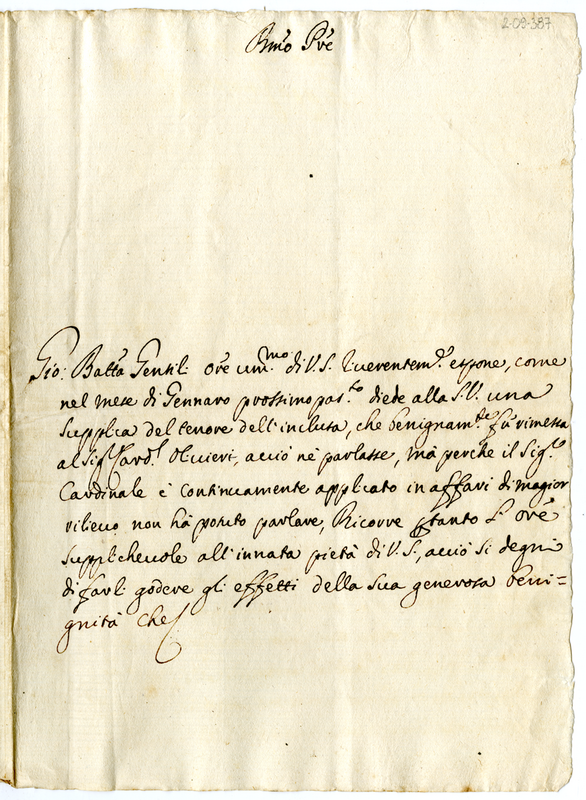 2-09-387
Bmo Pre
Gio: Batta Gentili Ore um.mo di V.S. riverentem.e espone, come
nel mese di Gennaro prossimo pas.to diede alla S.V. una
supplica del tenore dell'inclusa, che benignam.te fù rimessa
al Sig.r Card.l Olivieri, acciò nè parlasse, mà perche il Sig.r
Cardinale è continuamente applicato in affari di magior
rilievo non hà potuto parlare, Ricorre ptanto l'Ore
supplichevole all'innata pietà di V.S., acciò si degni
di farli godere gli effetti della sua generosa beni=
gnità che